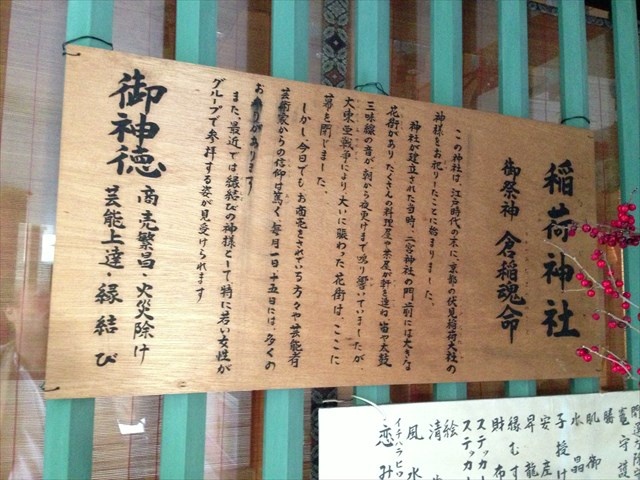 稲荷神社
御祭神 倉稲魂命
この神社は、江戸時代の末に、京都の伏見稲荷大社の
神様をお祀りしたことに始まりました。
神社が建立された当時、二宮神社の門前には大きな
花街があり たくさんの料理屋や茶屋が軒を連ね 笛や太鼓
三味線の音が、朝から夜更けまで鳴り響いていましたが
大東亜戦争により、大いに賑わった花街は、ここに
幕を閉じました。
しかし、今日でも お商売をされている方々や芸能者
芸術家からの信仰は篤く、毎月一日、十五日には、多くの
お参りがあります
また、最近では縁結びの神様として、特に若い女性が
グループで参拝する姿が見受けられます
御神徳 商売繁昌・火災除け
芸能上達・縁結び
開運
竈守護
勝
肌守
水晶
子授け
安産
昇龍
縁むす
財布
ステッカー
ステッカ
絵
清
風水
イチハラヒ
恋み